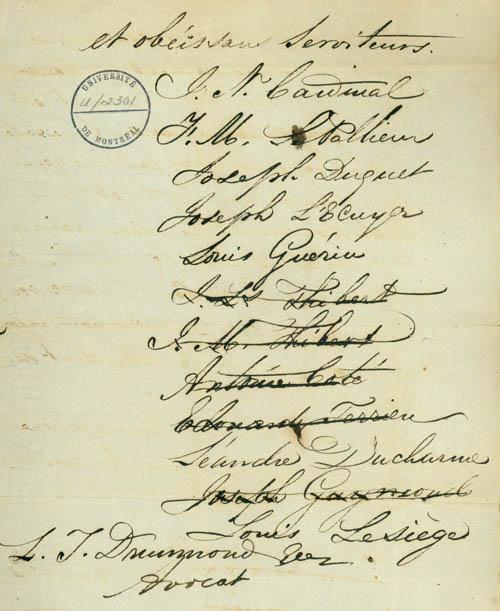 et obéissans Serviteurs.
UNIVERSITÉ
U/2301
DE MONTRÉAL
J. N. Cardinal
F. M. LePallieur
Joseph Duquet
Joseph L'Ecuyer
Louis Guérin
J. Ls Thibert
J. M. Thibert
Antoine Coté
Edouard Terrien
Léandre Ducharme
Joseph Gaymond
Louis Lesiège
L. T. Drummond
Avocat